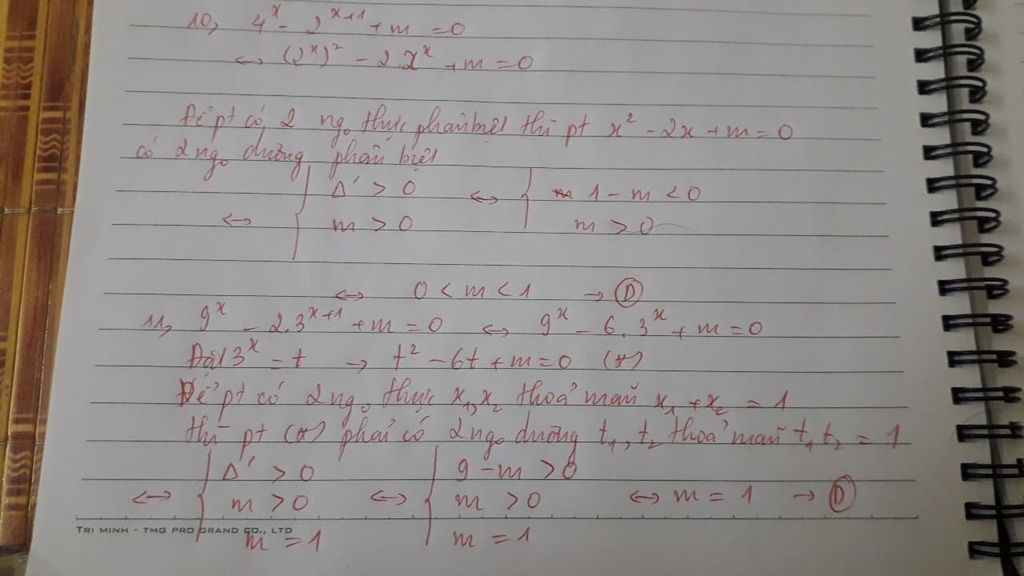 10, 4^x - 2^{x+1} + m = 0
↔ (2^x)^2 - 2.2^x + m = 0
Để pt có 2 ngo thực phân biệt thì pt x^2 - 2x + m = 0
có 2 ngo dương phân biệt
↔ { Δ' > 0 ↔ { 1 - m < 0
m > 0 m > 0
↔ 0 < m < 1 → Ⓓ
11, 9^x - 2.3^{x+1} + m = 0 ↔ 9^x - 6.3^x + m = 0
Đặt 3^x = t → t^2 - 6t + m = 0 (*)
Để pt có 2 ngo thực x_1, x_2 thoả mãn x_1 + x_2 = 1
thì pt (*) phải có 2 ngo dương t_1, t_2 thoả mãn t_1 t_2 = 1
↔ { Δ' > 0 ↔ { 9 - m > 0
m > 0 m > 0 ↔ m = 1 → Ⓓ
TRI MINH - TMG PRO GRAND CO., LTD
m = 1 m = 1